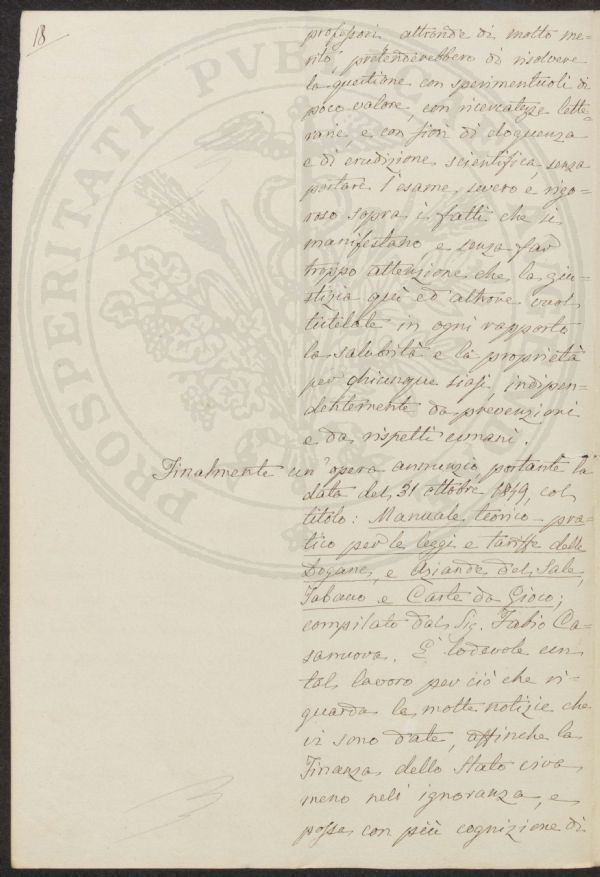 18
professori altronde di molto me=
rito, pretenderebbero di risolvere
la questione con sperimentuoli di
poco valore, con ricercatezze lette=
rarie e con fiori di eloquenza
e di erudizione scientifica, senza
portare l'esame severo e rigo=
roso sopra i fatti che si
manifestano, e senza far
troppo attenzione che la giu=
stizia quì ed altrove vuol
tutelate in ogni rapporto
la salubrità e la proprietà
per chicunque siasi, indipen=
dentemente da prevenzioni
e da rispetti umani.
Finalmente un'opera annunzio portante la
data del 31 ottobre 1849, col
titolo: Manuale teorico-pra=
tico per le leggi e tariffe delle
Dogane, e Aziende del Sale,
Tabacco e Carte da Gioco;
compilato dal Sig. Fabio Ca=
sanuova. È lodevole un
tal lavoro per ciò che ri=
guarda le molte notizie che
vi sono date, affinche la
Finanza dello Stato viva
meno nell'ignoranza, e
possa con più cognizione di
PROSPERITATI PVBLICAE